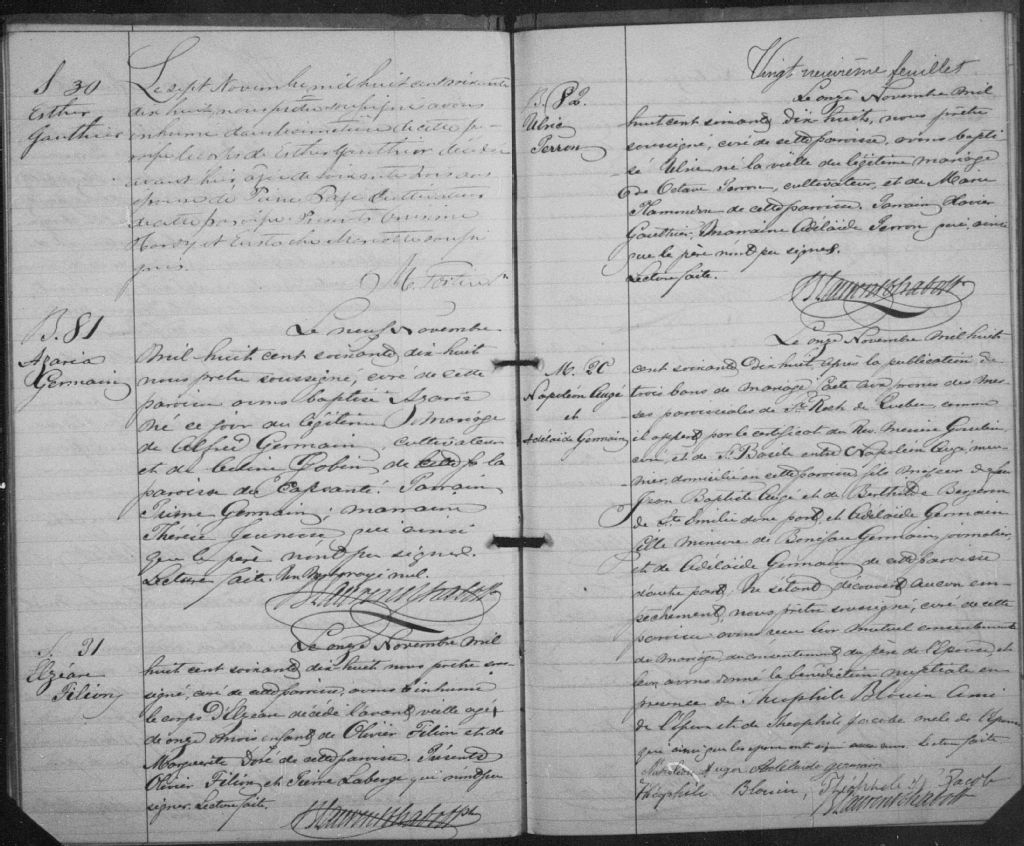 S 30
Esther
Gauthier
Le sept Novembre mil huit cent soixante
dix huit, nous prêtre soussigné avons
inhumé dans le cimetière de cette pa-
roisse le corps de Esther Gauthier décédée
avant hier, agée de soixante trois ans
épouse de Pierre Pagé Cultivateur
de cette paroisse. Présents
Hardy et Eustache soussi
gnés.
B. 81
Azaria
Germain
Le neuf Novembre
Mil huit cent soixante dix huit
nous prêtre soussigné, curé de cette
paroisse avons baptisé Azaria
né ce jour du légitime mariage
de Alfred Germain, cultivateur
et de Célina Gobin de cette p la
paroisse du Cap Santé. Parrain
Pierre Germain; marraine
Thérèse qui ainsi
que le père n'ont pu signer.
Lecture faite. Un mot rayé nul.
S. 31
Elzéar
Filion
Le onze Novembre Mil
huit cent soixante dix huit nous prêtre sous-
signé, curé de cette paroisse, avons inhumé
le corps d'Elzéar décédé l'avant veille agé
de onze mois enfant de Olivier Filion et de
Marguerite Doré de cette paroisse. Présents
Olivier Filion et Pierre Laberge qui n'ont pu
signer. Lecture faite.
Vingt neuvième feuillet
B. 82.
Ulric
Perron
Le onze Novembre Mil
huit cent soixante dix huit, nous prêtre
soussigné, curé de cette paroisse, avons bapti-
sé Ulric né la veille du légitime mariage
de Octave Perron, cultivateur, et de Marie
Hamondon de cette paroisse. Parrain Xavier
Gauthier, Marraine Adélaïde Perron qui, ainsi
que le père n'ont pu signer.
Lecture faite.
M. 20
Napoléon Augé
et
Adélaïde Germain
Le onze Novembre Mil huit
cent soixante Dix huit, après la publication de
trois bans de mariage faite aux prones des mes-
ses paroissiales de St. Roch de Québec, comme
il appert par le certificat du Rev. Messire Gosselin,
curé, et de St. Basile entre Napoléon Augé, menui-
sier, domicilié en cette paroisse, fils majeur de feu
Jean Baptiste Augé et de Berthilde Bergeron
de Ste. Emilie d'une part, et Adélaïde Germain
fille mineure de Bonéfan Germain, journalier,
et de Adélaïde Germain de cette paroisse
d'autre part, Ne s'étant découvert aucun em-
pêchement, nous, prêtre soussigné, curé de cette
paroisse avons reçu leur mutuel consentement
de mariage, du consentement du père de l'épouse, et
leur avons donné la bénédiction nuptiale en
présence de Théophile Blouin ami
de l'époux et de Théophile Jacobe oncle de l'épouse
qui ainsi que les époux ont signé avec nous. Lecture faite.
Napoléon Auger Adelaide germain
théophile Blouin, Théophile Jacob